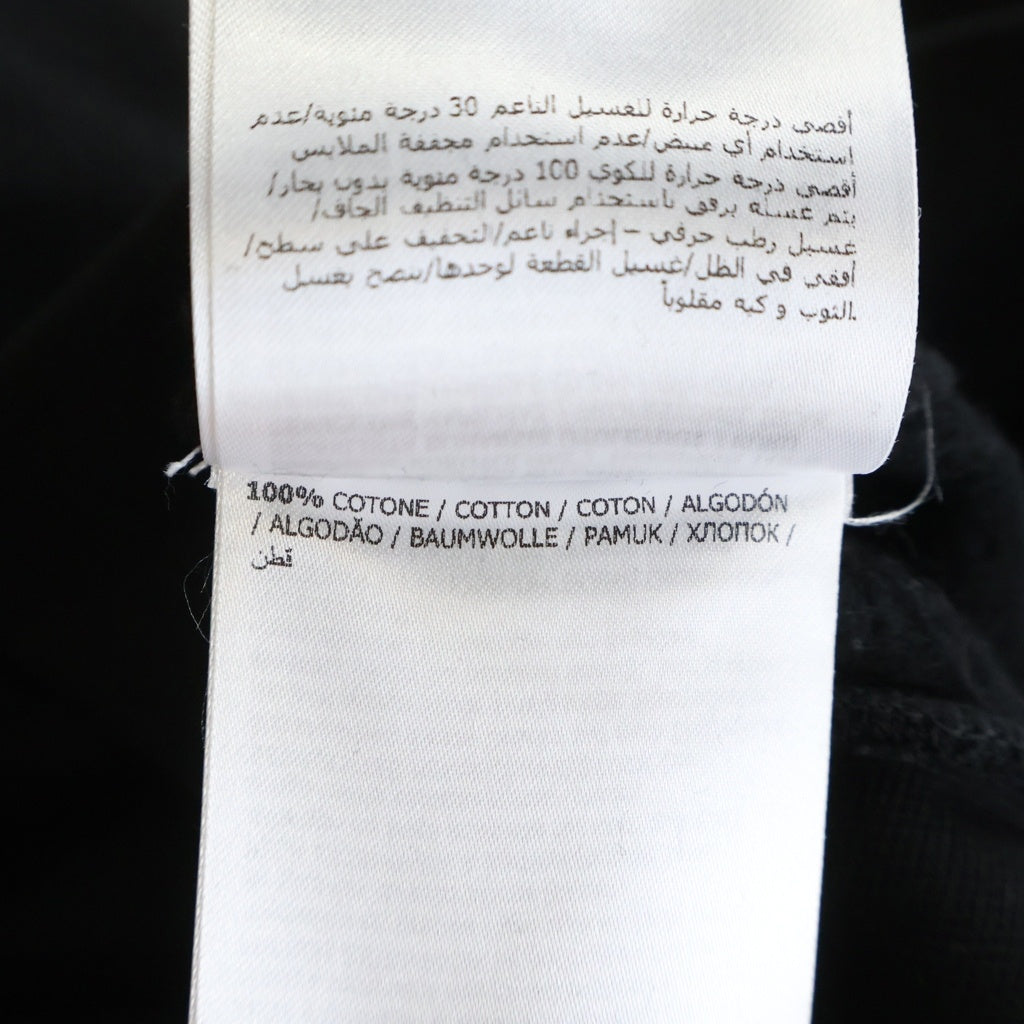 أقصى درجة حرارة للغسيل الناعم 30 درجة مئوية/عدم
استخدام أي مبيض/عدم استخدام مجففة الملابس
أقصى درجة حرارة للكوي 100 درجة مئوية بدون بخار/
يتم غسله برفق باستخدام سائل التنظيف الجاف/
غسيل رطب حرفي – إجراء ناعم/التجفيف على سطح/
أفقي في الظل/غسيل القطعة لوحدها/ينصح بغسل
الثوب و كيه مقلوباً.
100% COTONE / COTTON / COTON / ALGODÓN
/ ALGODÃO / BAUMWOLLE / PAMUK / ХЛОПОК /
قطن